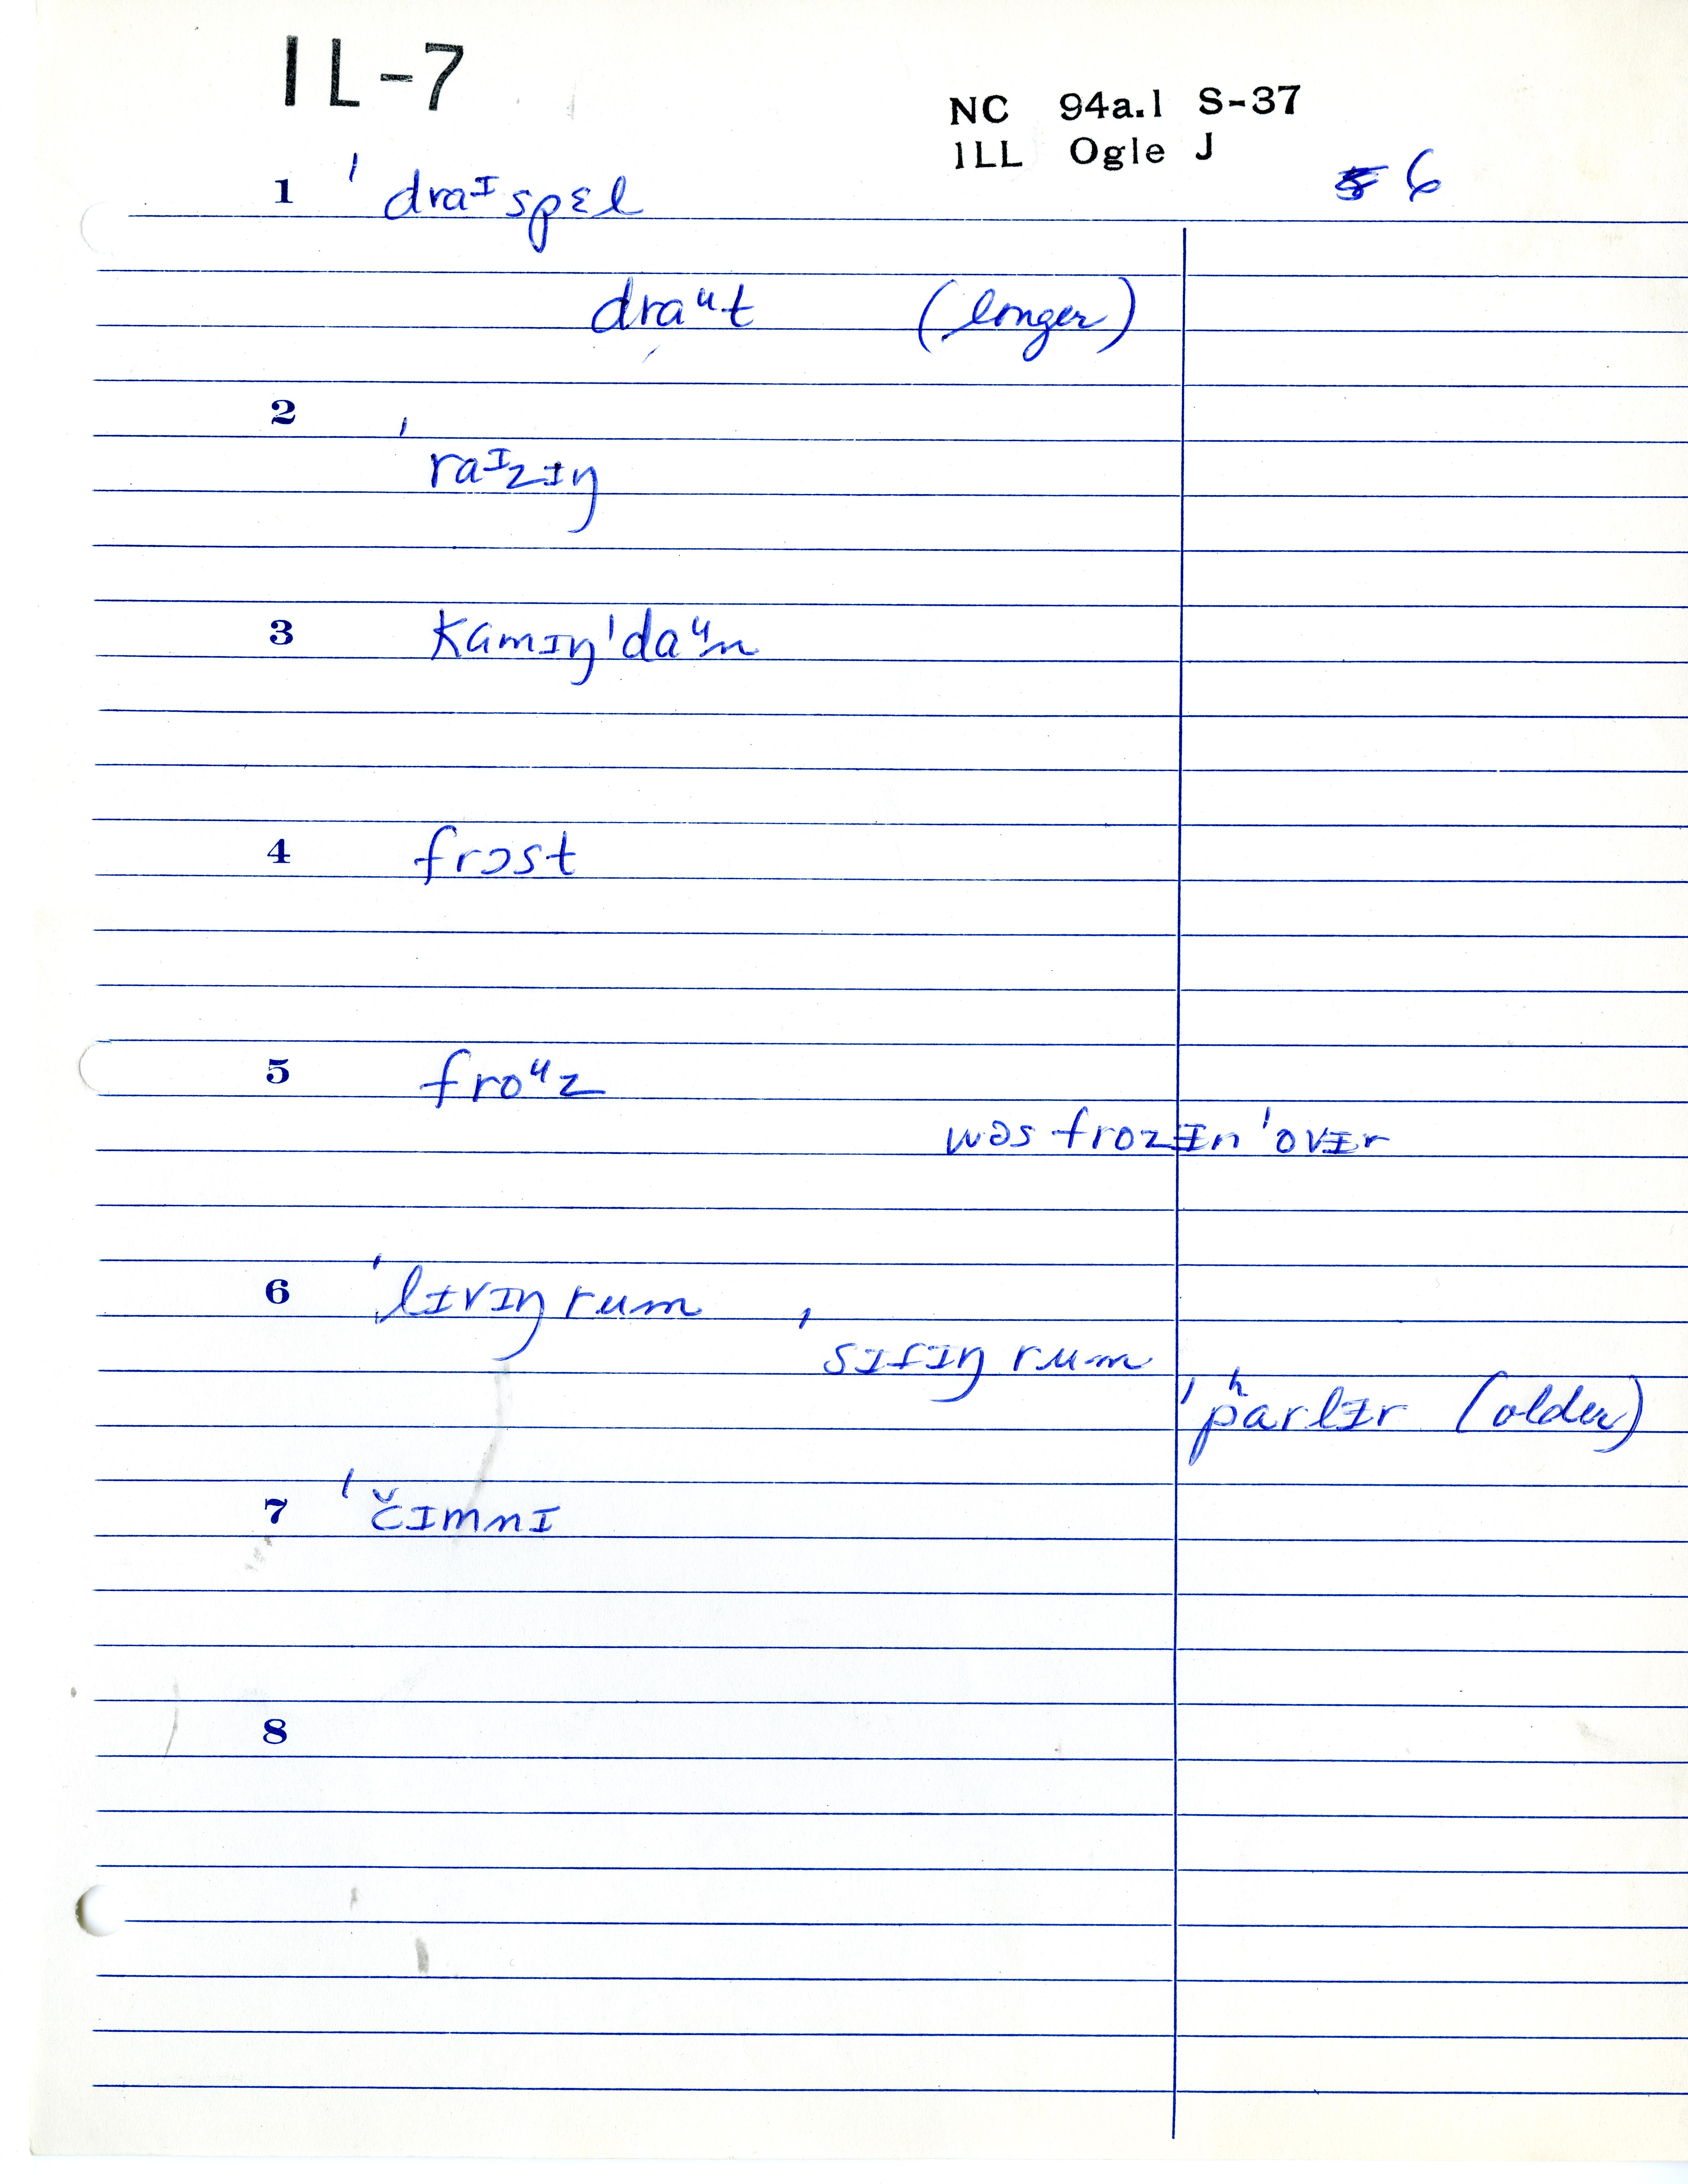 IL-7
NC 94a.1 S-37
ILL Ogle J
6
1 ˈdraᴵspɛl
draᵘt (longer)
2 ˈraᴵzɪŋ
3 kamɪŋˈdaᵘn
4 frɔst
5 froᵘz
wəs frozɪn ˈovɪr
6 ˈlɪvɪŋ rum
ˈsɪtɪŋ rum
ˈpʰarlɪr (older)
7 ˈčɪmnɪ
8